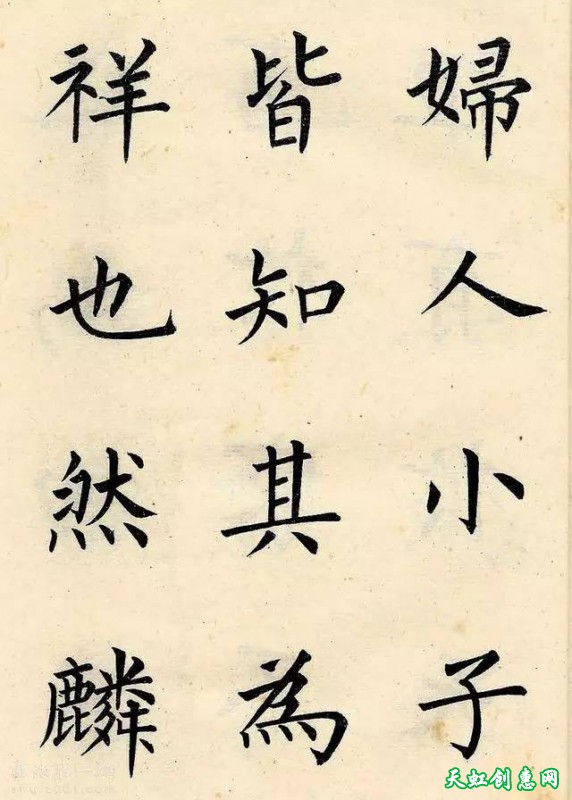 婦人小子
皆知其為
祥也然麟
天虹创惠网